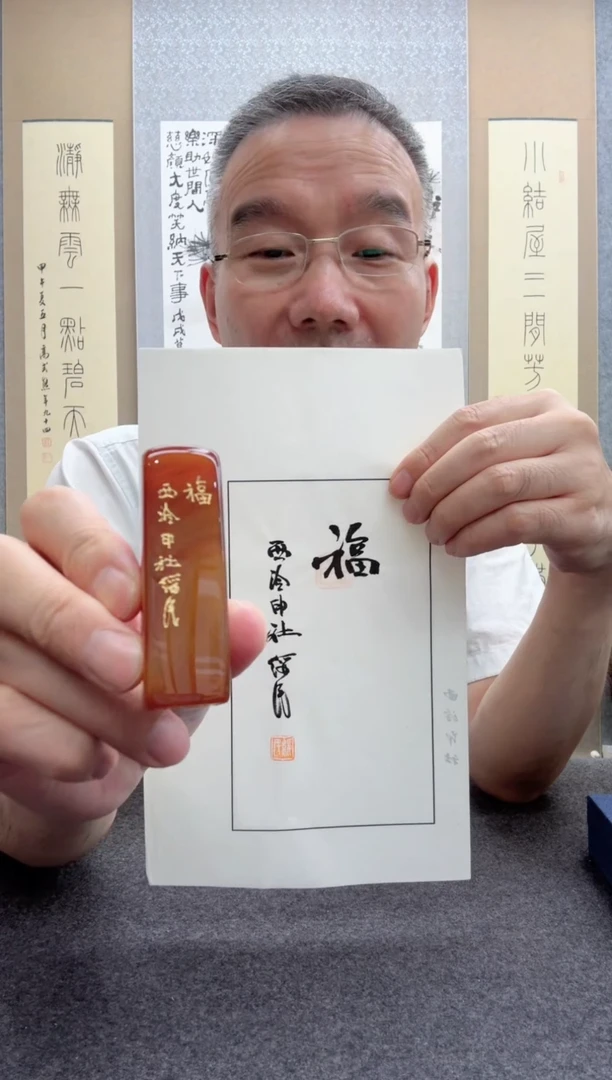 小結屋三間芳
樂助世間人
慈顏大度笑納天下事
戊戌
瀞無雲一點碧天
甲午夏五月高式熊年九十四
福
西泠印社
福
西泠印社
西泠印社